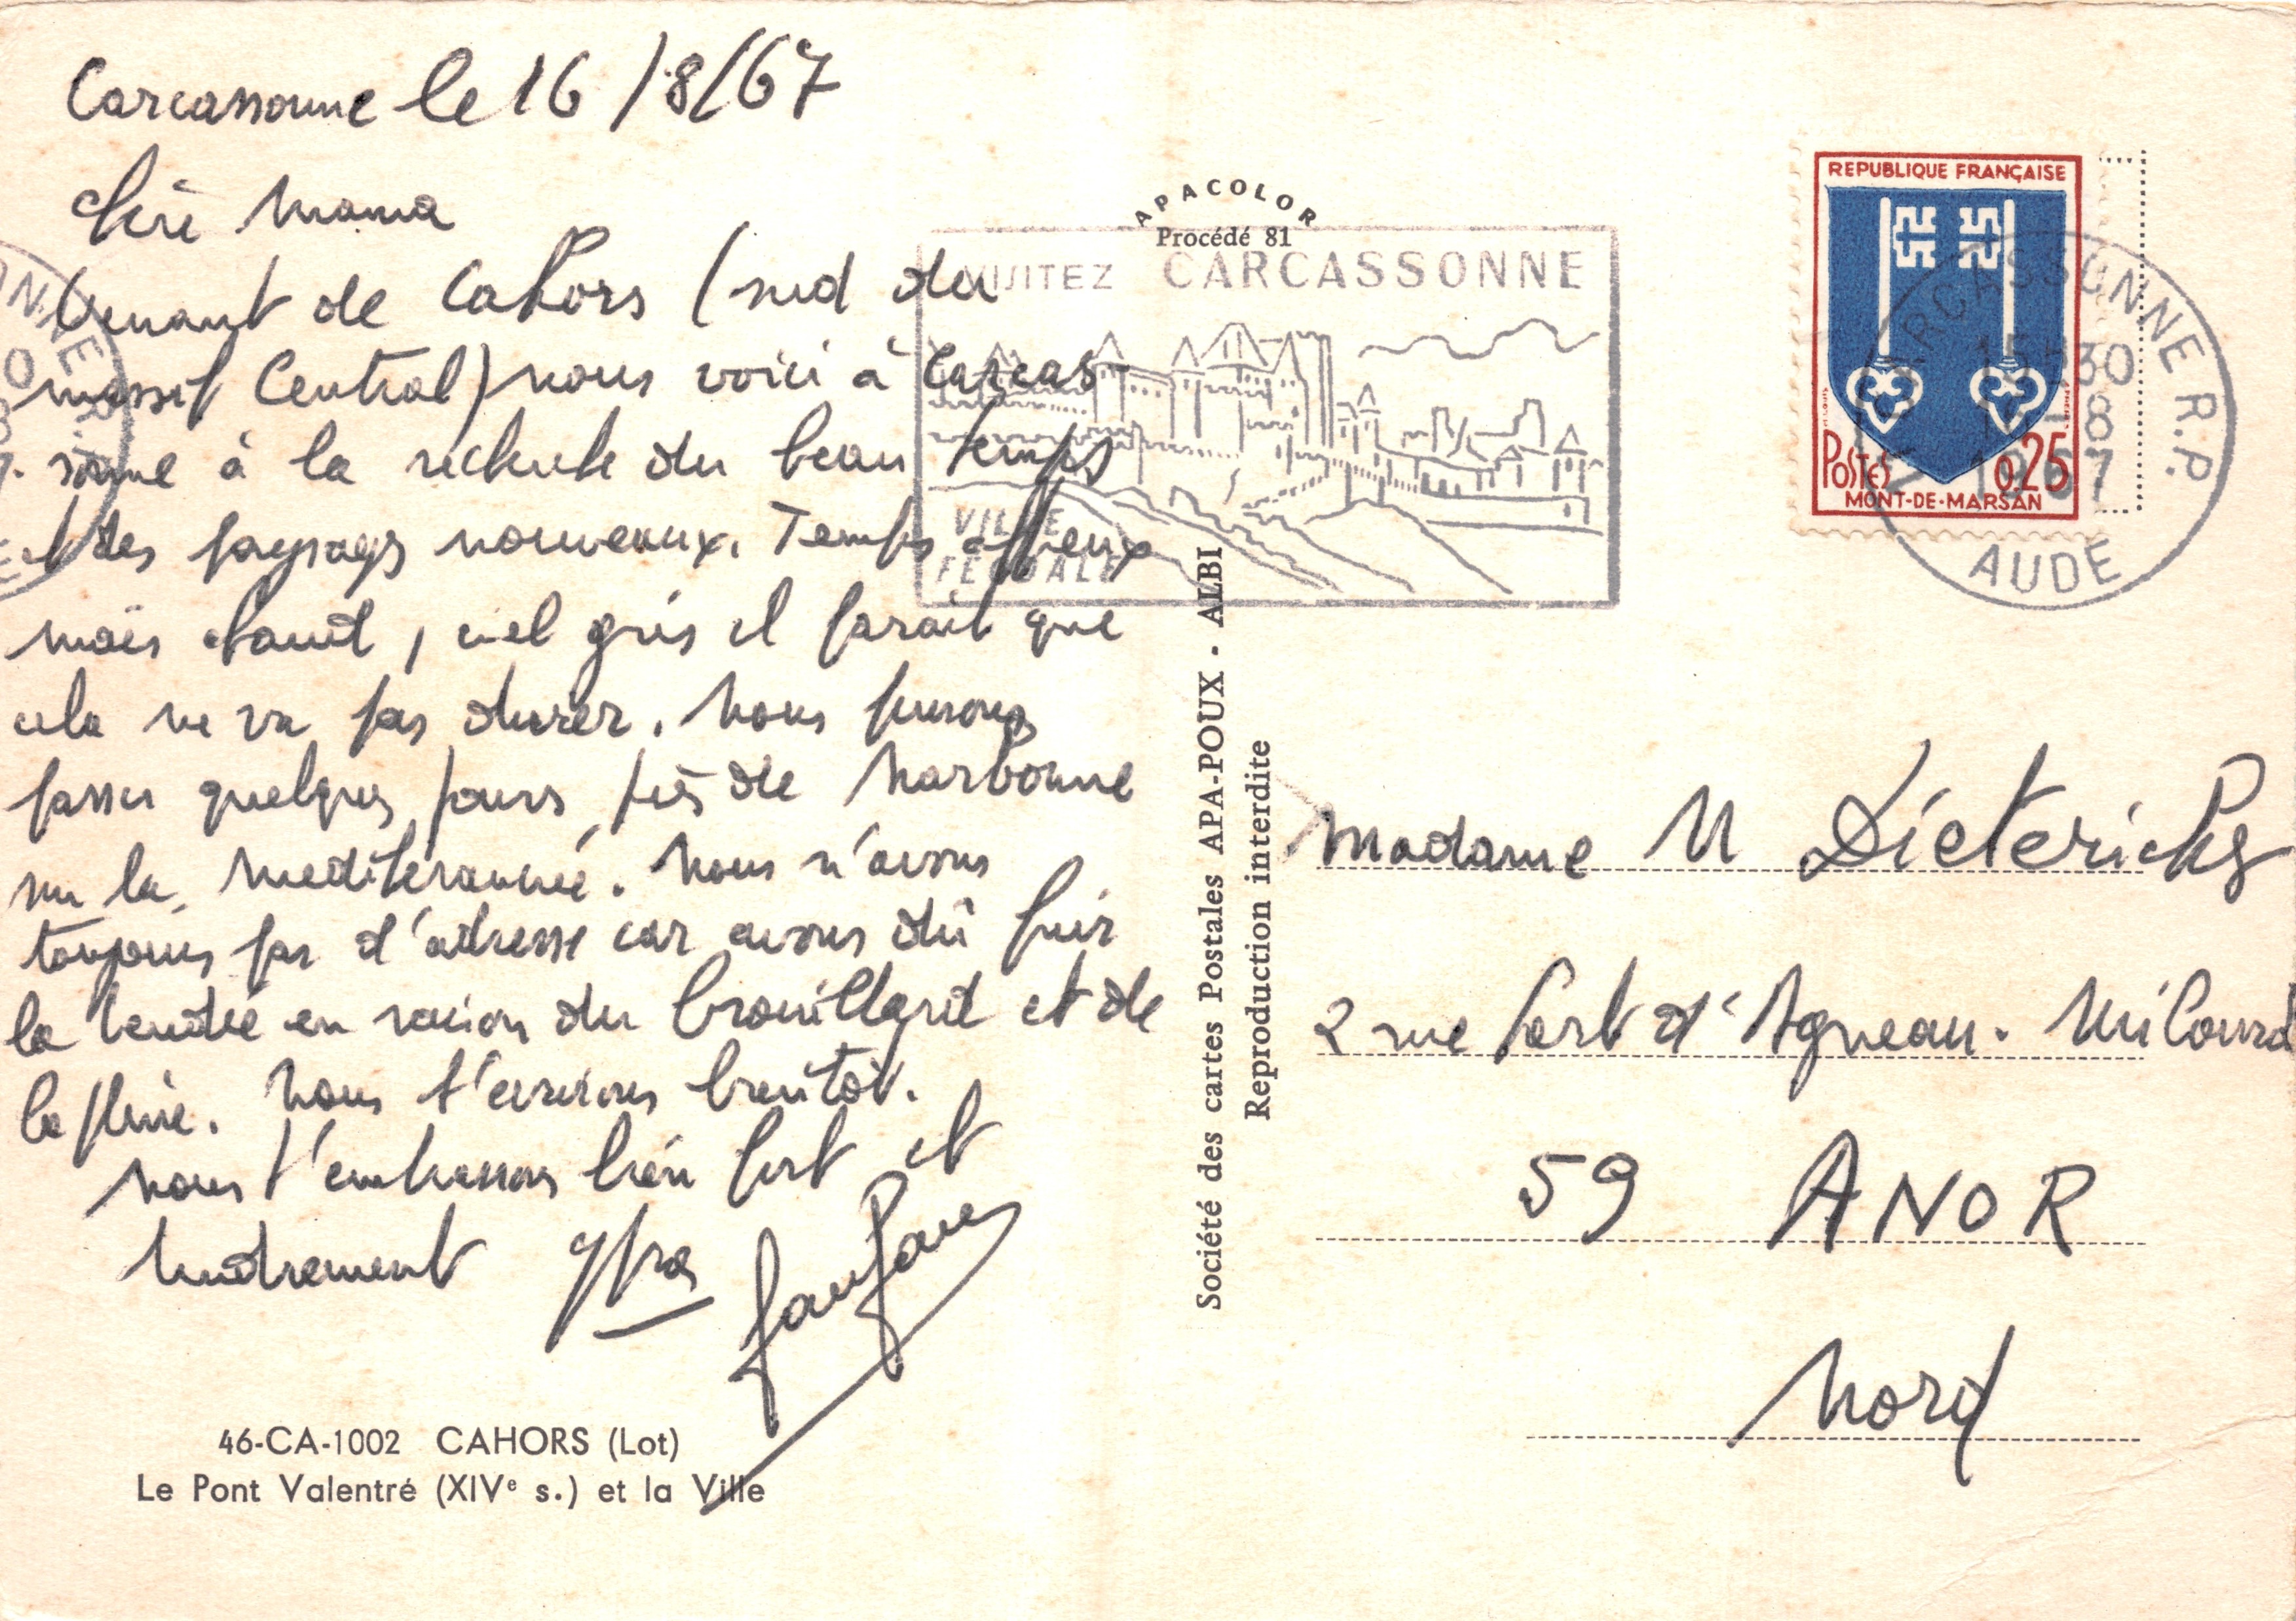 Carcassonne le 16/8/67
chère mama
Venant de Cahors (sud du
massif Central) nous voici à Carcas-
sonne à la recherche du beau temps
et des paysages nouveaux. Temps affreux
mais chaud, ciel gris il parait que
cela ne va pas durer. Nous pensons
passer quelques jours près de Narbonne
sur la méditerannée. Nous n'avons
toujours pas d'adresse car avons dû fuir
la Vendée en raison du brouillard et de
la pluie. Nous t'écrirons bientôt.
Nous t'embrassons bien fort et
tendrement
46-CA-1002 CAHORS (Lot)
Le Pont Valentré (XIVe s.) et la Ville
APACOLOR
Procédé 81
VISITEZ CARCASSONNE
VILLE
FEODALE
Société des cartes Postales APA-POUX - ALBI
Reproduction interdite
REPUBLIQUE FRANÇAISE
POSTES 0,25
MONT-DE-MARSAN
CARCASSONNE R.P.
15H30
-8
1967
AUDE
Madame M Dieterichs
2 rue Fort d'Agneau. Milourd
59 ANOR
Nord